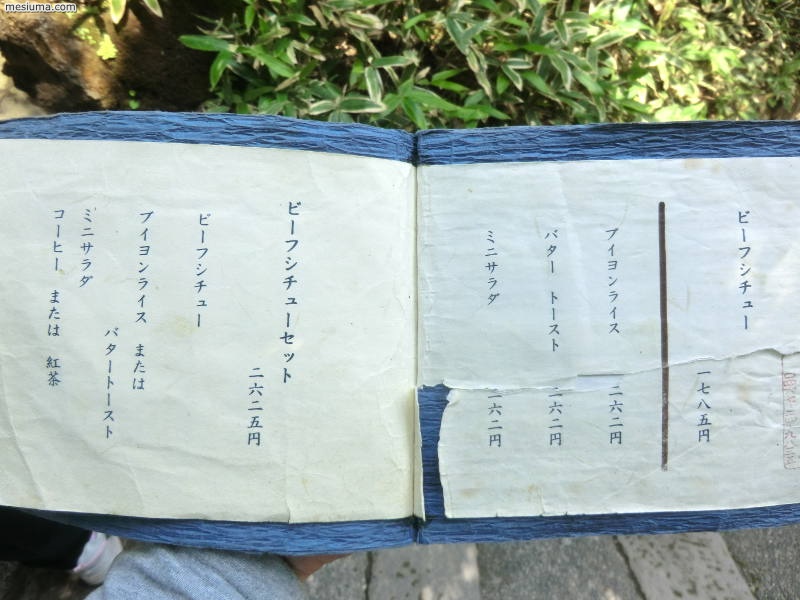 mesiuma.com
ビーフシチュー 一七八五円
ブイヨンライス 二六二円
バター トースト 二六二円
ミニサラダ 二六二円
ビーフシチューセット
二六二五円
ビーフシチュー
ブイヨンライス または
バタートースト
ミニサラダ
コーヒー または 紅茶